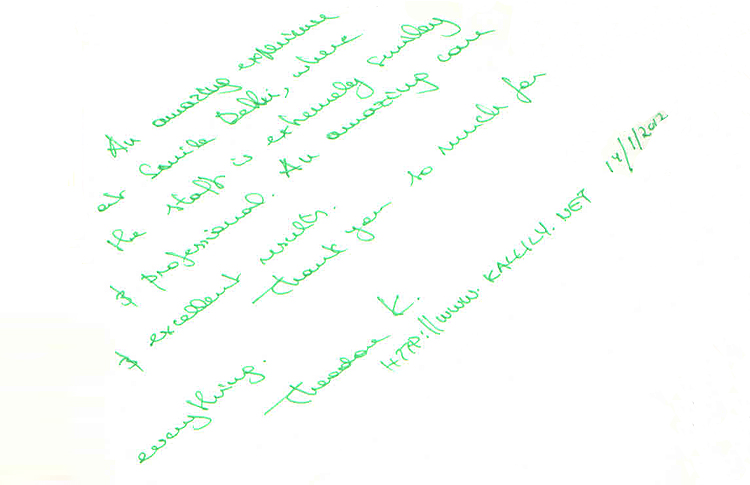 An amazing experience
at Smile Delhi, where
the staff is extremely smiley
& professional. An amazing care
& excellent results.
Thank you so much for
everything.
Theodore K.
HTTP://WWW.KALLILY.NET
14/1/2012